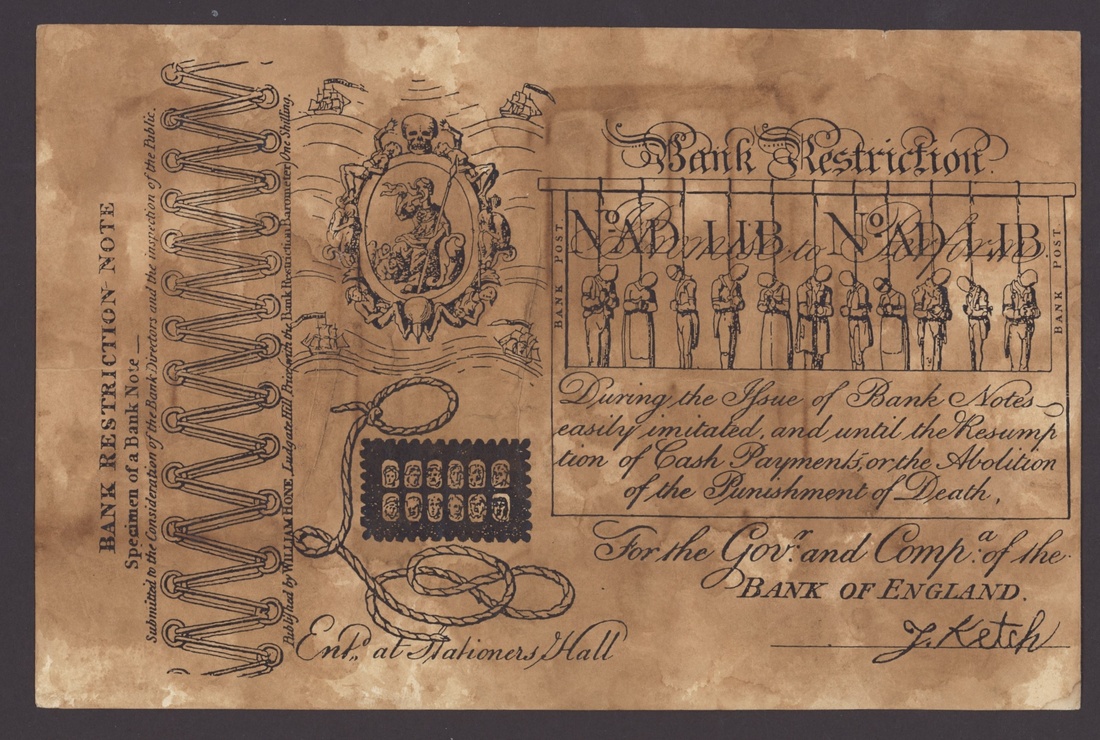 BANK RESTRICTION NOTE
Specimen of a Bank Note —
Submitted to the Consideration of the Bank Directors and the inspection of the Public.
Published by WILLIAM HONE, Ludgate Hill Price, with the Bank Restriction Barometer, One Shilling.
Bank Restriction.
No. AD. LIB. No. AD LIB.
Promise to Perform
BANK POST
BANK POST
During the Issue of Bank Notes
easily imitated, and until the Resump
tion of Cash Payments, or the Abolition
of the Punishment of Death,
For the Govr. and Compa. of the
BANK OF ENGLAND.
J. Ketch
Entd. at Stationers Hall